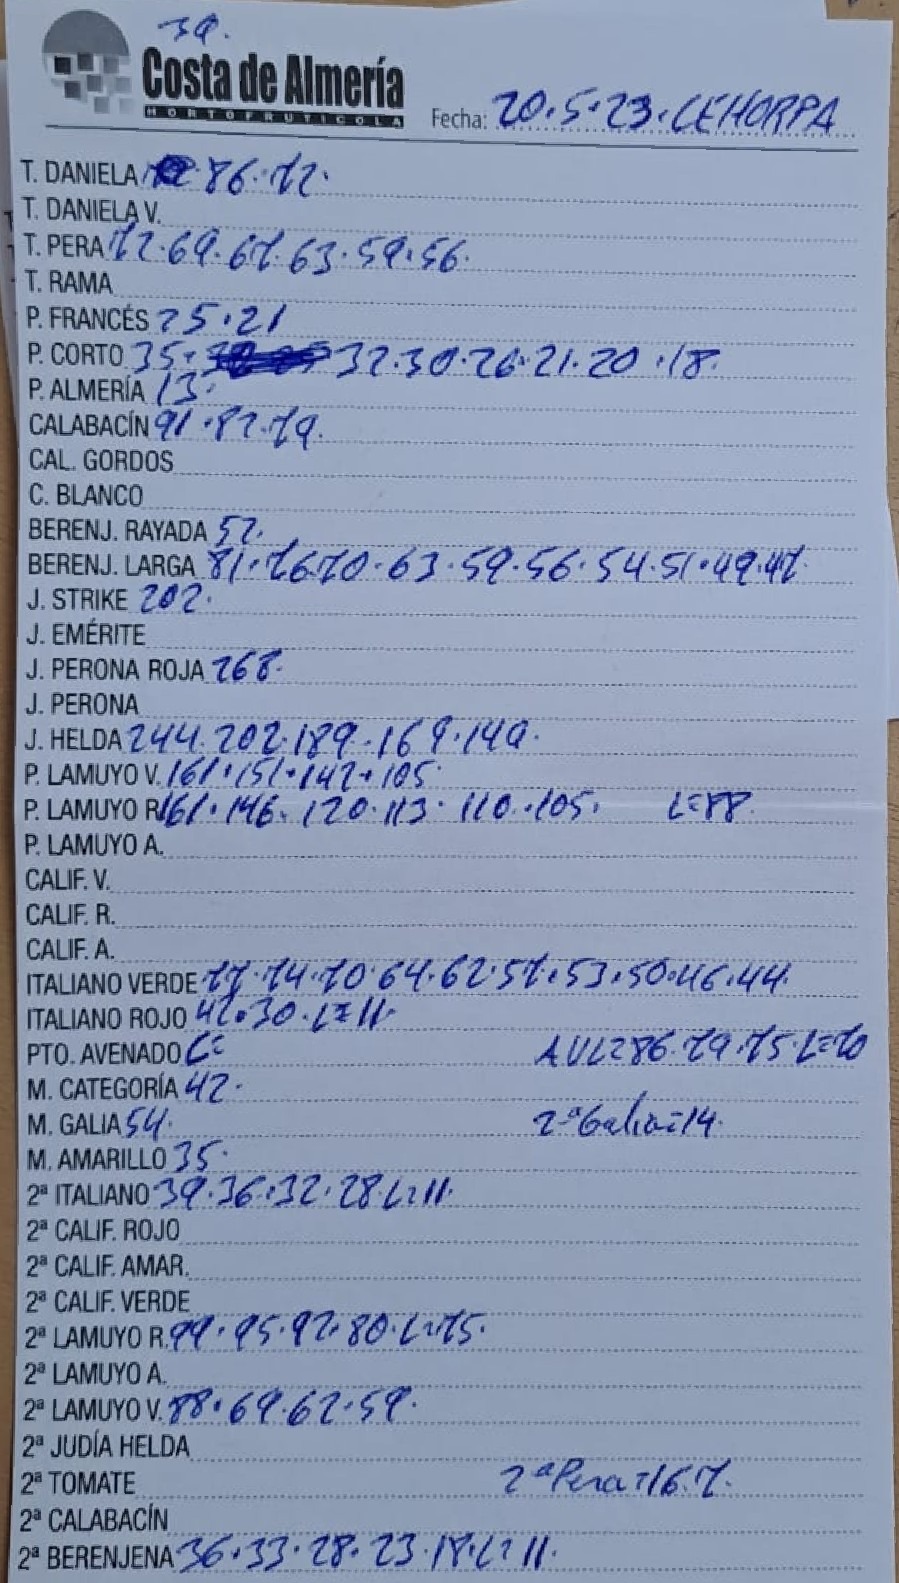 Costa de Almería
HORTOFRUTICOLA
Fecha: 20.5.23. CEHORPA
T. DANIELA 86.72.
T. DANIELA V.
T. PERA 72.69.67.63.59.56.
T. RAMA
P. FRANCÉS 25.21
P. CORTO 35. 32.30.26.21.20.18.
P. ALMERÍA 13.
CALABACÍN 91.82.79.
CAL. GORDOS
C. BLANCO
BERENJ. RAYADA 52.
BERENJ. LARGA 81.76.70.63.59.56.54.51.49.47.
J. STRIKE 202.
J. EMÉRITE
J. PERONA ROJA 268.
J. PERONA
J. HELDA 244.202.189.169.149.
P. LAMUYO V. 161.151.142.105.
P. LAMUYO R. 161.146.120.113.110.105. L=88.
P. LAMUYO A.
CALIF. V.
CALIF. R.
CALIF. A.
ITALIANO VERDE 77.74.70.64.62.57.53.50.46.44.
ITALIANO ROJO 42.30.L=11.
PTO. AVENADO L= AVL=86.79.75.L=70
M. CATEGORÍA 42.
M. GALIA 54. 2ª Galia=14.
M. AMARILLO 35.
2ª ITALIANO 39.36.32.28 L=11.
2ª CALIF. ROJO
2ª CALIF. AMAR.
2ª CALIF. VERDE
2ª LAMUYO R. 99.95.92.80.L=75.
2ª LAMUYO A.
2ª LAMUYO V. 88.69.62.59.
2ª JUDÍA HELDA
2ª TOMATE 2ª Pera=16.7.
2ª CALABACÍN
2ª BERENJENA 36.33.28.23.18.L=11.